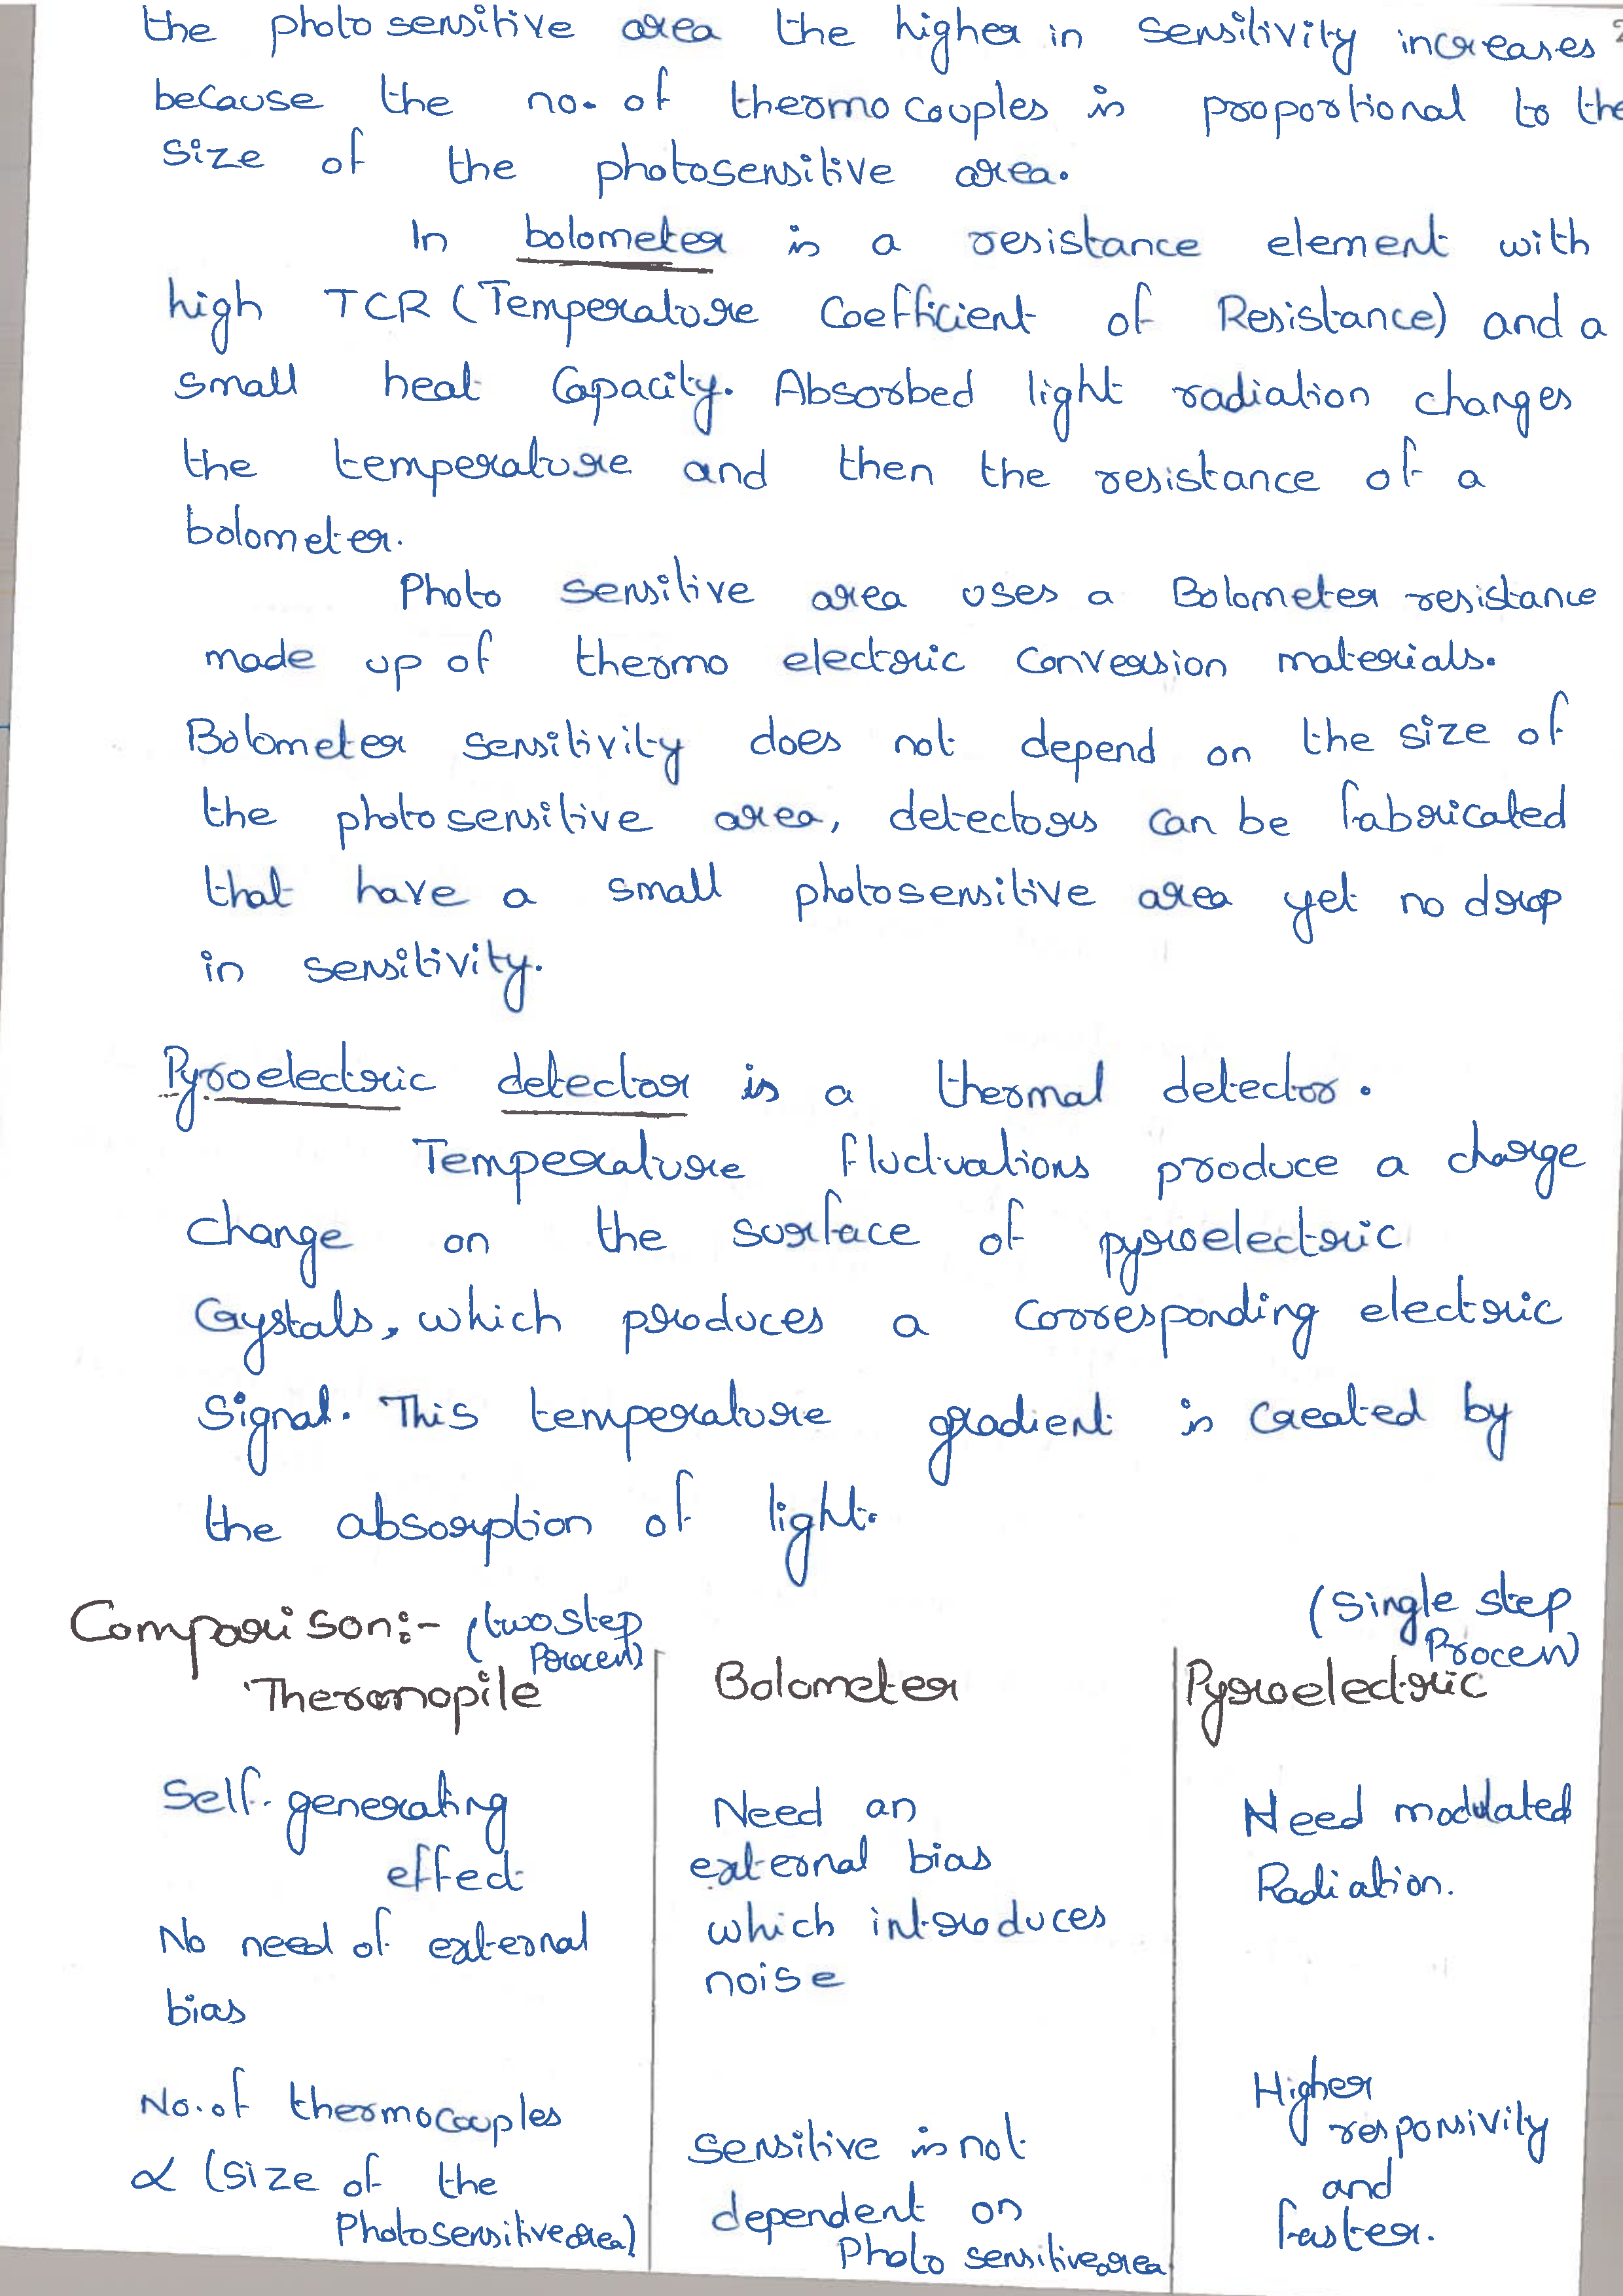 the photosensitive area the higher in sensitivity increases
because the no. of thermocouples is proportional to the
size of the photosensitive area.
In bolometer is a resistance element with
high TCR (Temperature Coefficient of Resistance) and a
small heat Capacity. Absorbed light radiation changes
the temperature and then the resistance of a
bolometer.
Photo sensitive area uses a Bolometer resistance
made up of thermo electric conversion materials.
Bolometer sensitivity does not depend on the size of
the photosensitive area, detectors can be fabricated
that have a small photosensitive area yet no drop
in sensitivity.
Pyroelectric detector is a thermal detector.
Temperature fluctuations produce a charge
change on the surface of pyroelectric
Crystals, which produces a corresponding electric
Signal. This temperature gradient is created by
the absorption of light.
Comparison:- (two step Process) (Single step Process)
Thermopile Bolometer Pyroelectric
Self-generating effect
No need of external
bias
No. of thermocouples
∝ (size of the
Photosensitive area)
Need an
external bias
which introduces
noise
Sensitive is not
dependent on
Photo sensitive area
Need modulated
Radiation.
Higher
responsivity
and
faster.